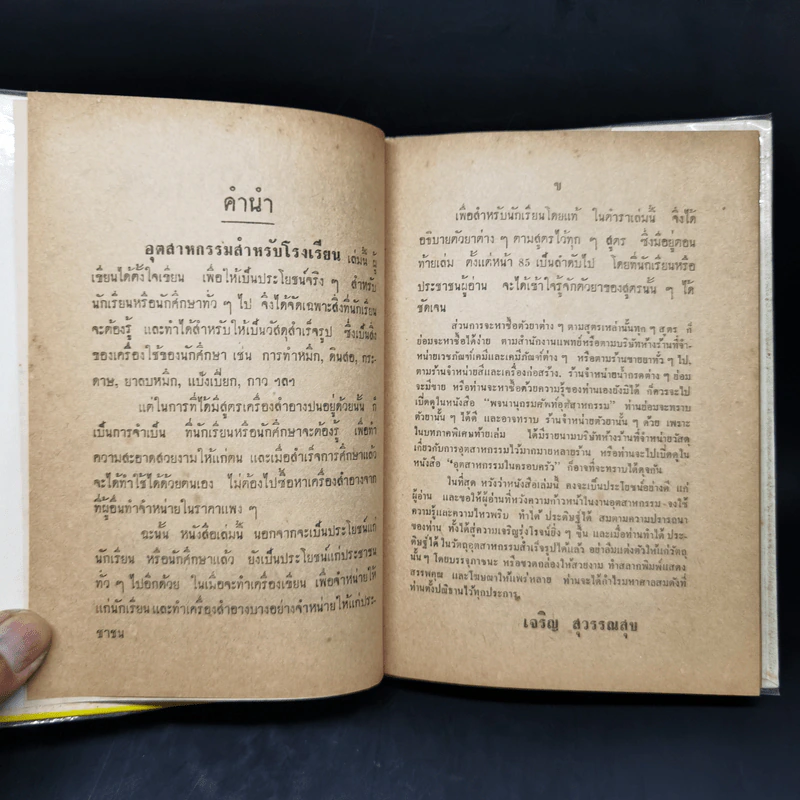 คำนำ
อุตสาหกรรมสำหรับโรงเรียน เล่มนี้ ผู้
เขียนได้ตั้งใจเขียน เพื่อให้เป็นประโยชน์จริง ๆ สำหรับ
นักเรียนหรือนักศึกษาทั่ว ๆ ไป จึงได้จัดเฉพาะสิ่งที่นักเรียน
จะต้องรู้ และทำได้สำหรับให้เป็นวัสดุสำเร็จรูป ซึ่งเป็นสิ่ง
ของเครื่องใช้ของนักศึกษา เช่น การทำหมึก, ดินสอ, กระ-
ดาษ, ยาลบหมึก, แป้งเปียก, กาว ฯลฯ
แต่ในการที่ได้มีสูตรเครื่องสำอางปนอยู่ด้วยนั้น ก็
เป็นการจำเป็น ที่นักเรียนหรือนักศึกษาจะต้องรู้ เพื่อทำ
ความสะอาดสวยงามให้แก่ตน และเมื่อสำเร็จการศึกษาแล้ว
จะได้ทำใช้ได้ด้วยตนเอง ไม่ต้องไปซื้อหาเครื่องสำอางจาก
ที่ผู้อื่นทำจำหน่ายในราคาแพง ๆ
ฉะนั้น หนังสือเล่มนี้ นอกจากจะเป็นประโยชน์แก่
นักเรียน หรือนักศึกษาแล้ว ยังเป็นประโยชน์แก่ประชาชน
ทั่ว ๆ ไปอีกด้วย ในเมื่อจะทำเครื่องเขียน เพื่อจำหน่ายให้
แก่นักเรียนและทำเครื่องสำอางบางอย่างจำหน่ายให้แก่ประ-
ชาชน
ข
เพื่อสำหรับนักเรียนโดยแท้ ในตำราเล่มนี้ จึงได้
อธิบายตัวยาต่าง ๆ ตามสูตรไว้ทุก ๆ สูตร ซึ่งมีอยู่ตอน
ท้ายเล่ม ตั้งแต่หน้า 85 เป็นลำดับไป โดยที่นักเรียนหรือ
ประชาชนผู้อ่าน จะได้เข้าใจรู้จักตัวยาของสูตรนั้น ๆ ได้
ชัดเจน
ส่วนการจะหาซื้อตัวยาต่าง ๆ ตามสูตรเหล่านั้นทุก ๆ สูตร ก็
ย่อมจะหาซื้อได้ง่าย ตามสำนักงานแพทย์หรือตามบริษัทห้างร้านที่จำ-
หน่ายเวชภัณฑ์เคมีและเคมีภัณฑ์ต่าง ๆ หรือตามร้านขายยาทั่ว ๆ ไป,
ตามร้านจำหน่ายสีและเครื่องก่อสร้าง, ร้านจำหน่ายน้ำกรดต่าง ๆ ย่อม
จะมีขาย หรือท่านจะหาซื้อด้วยความรู้ของท่านเองยังมิได้ ก็ควรจะไป
เปิดดูในหนังสือ "พจนานุกรมศัพท์อุตสาหกรรม" ท่านย่อมจะทราบ
ตัวยานั้น ๆ ได้ดี และอาจทราบ ร้านจำหน่ายตัวยานั้น ๆ ด้วย เพราะ
ในบทภาคพิเศษท้ายเล่ม ได้มีรายนามบริษัทห้างร้านที่จำหน่ายวัสดุ
เกี่ยวกับการอุตสาหกรรมไว้มากมายหลายร้าน หรือท่านจะไปเปิดดูใน
หนังสือ "อุตสาหกรรมในครอบครัว" ก็อาจที่จะทราบได้ดุจกัน
ในที่สุด หวังว่าหนังสือเล่มนี้ คงจะเป็นประโยชน์อย่างดี แก่
ผู้อ่าน และขอให้ผู้อ่านที่หวังความก้าวหน้าในงานอุตสาหกรรม จงใช้
ความรู้และความไหวพริบ ทำได้ ประดิษฐ์ได้ สมตามความปรารถนา
ของท่าน ทั้งได้สู่ความเจริญรุ่งโรจน์ยิ่ง ๆ ขึ้น และเมื่อท่านทำได้ ประ-
ดิษฐ์ได้ ในวัตถุอุตสาหกรรมสำเร็จรูปได้แล้ว อย่าลืมแต่งตัวให้แก่วัตถุ
นั้น ๆ โดยบรรจุภาชนะ หรือขวดกล่องให้สวยงาม ทำสลากพิมพ์แสดง
สรรพคุณ และโฆษณาให้แพร่หลาย ท่านจะได้กำไรมหาศาลสมดังที่
ท่านตั้งปณิธานไว้ทุกประการ.
เจริญ สุวรรณสุข